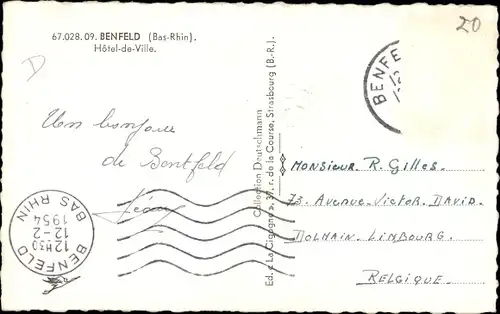 67.028.09. BENFELD (Bas-Rhin).
Hôtel-de-Ville.
20
D
Un bonjour
de Bentfeld
Léon
BENFELD
BAS RHIN
12H30
12-2
1954
Collection Deutschmann
Ed. « La Cigogne », 37, r. de la Course, Strasbourg (B.-R.).
BENFE
12
Monsieur. R. Gilles.
73. Avenue. Victor. David.
Dolhain. Limbourg.
Belgique.